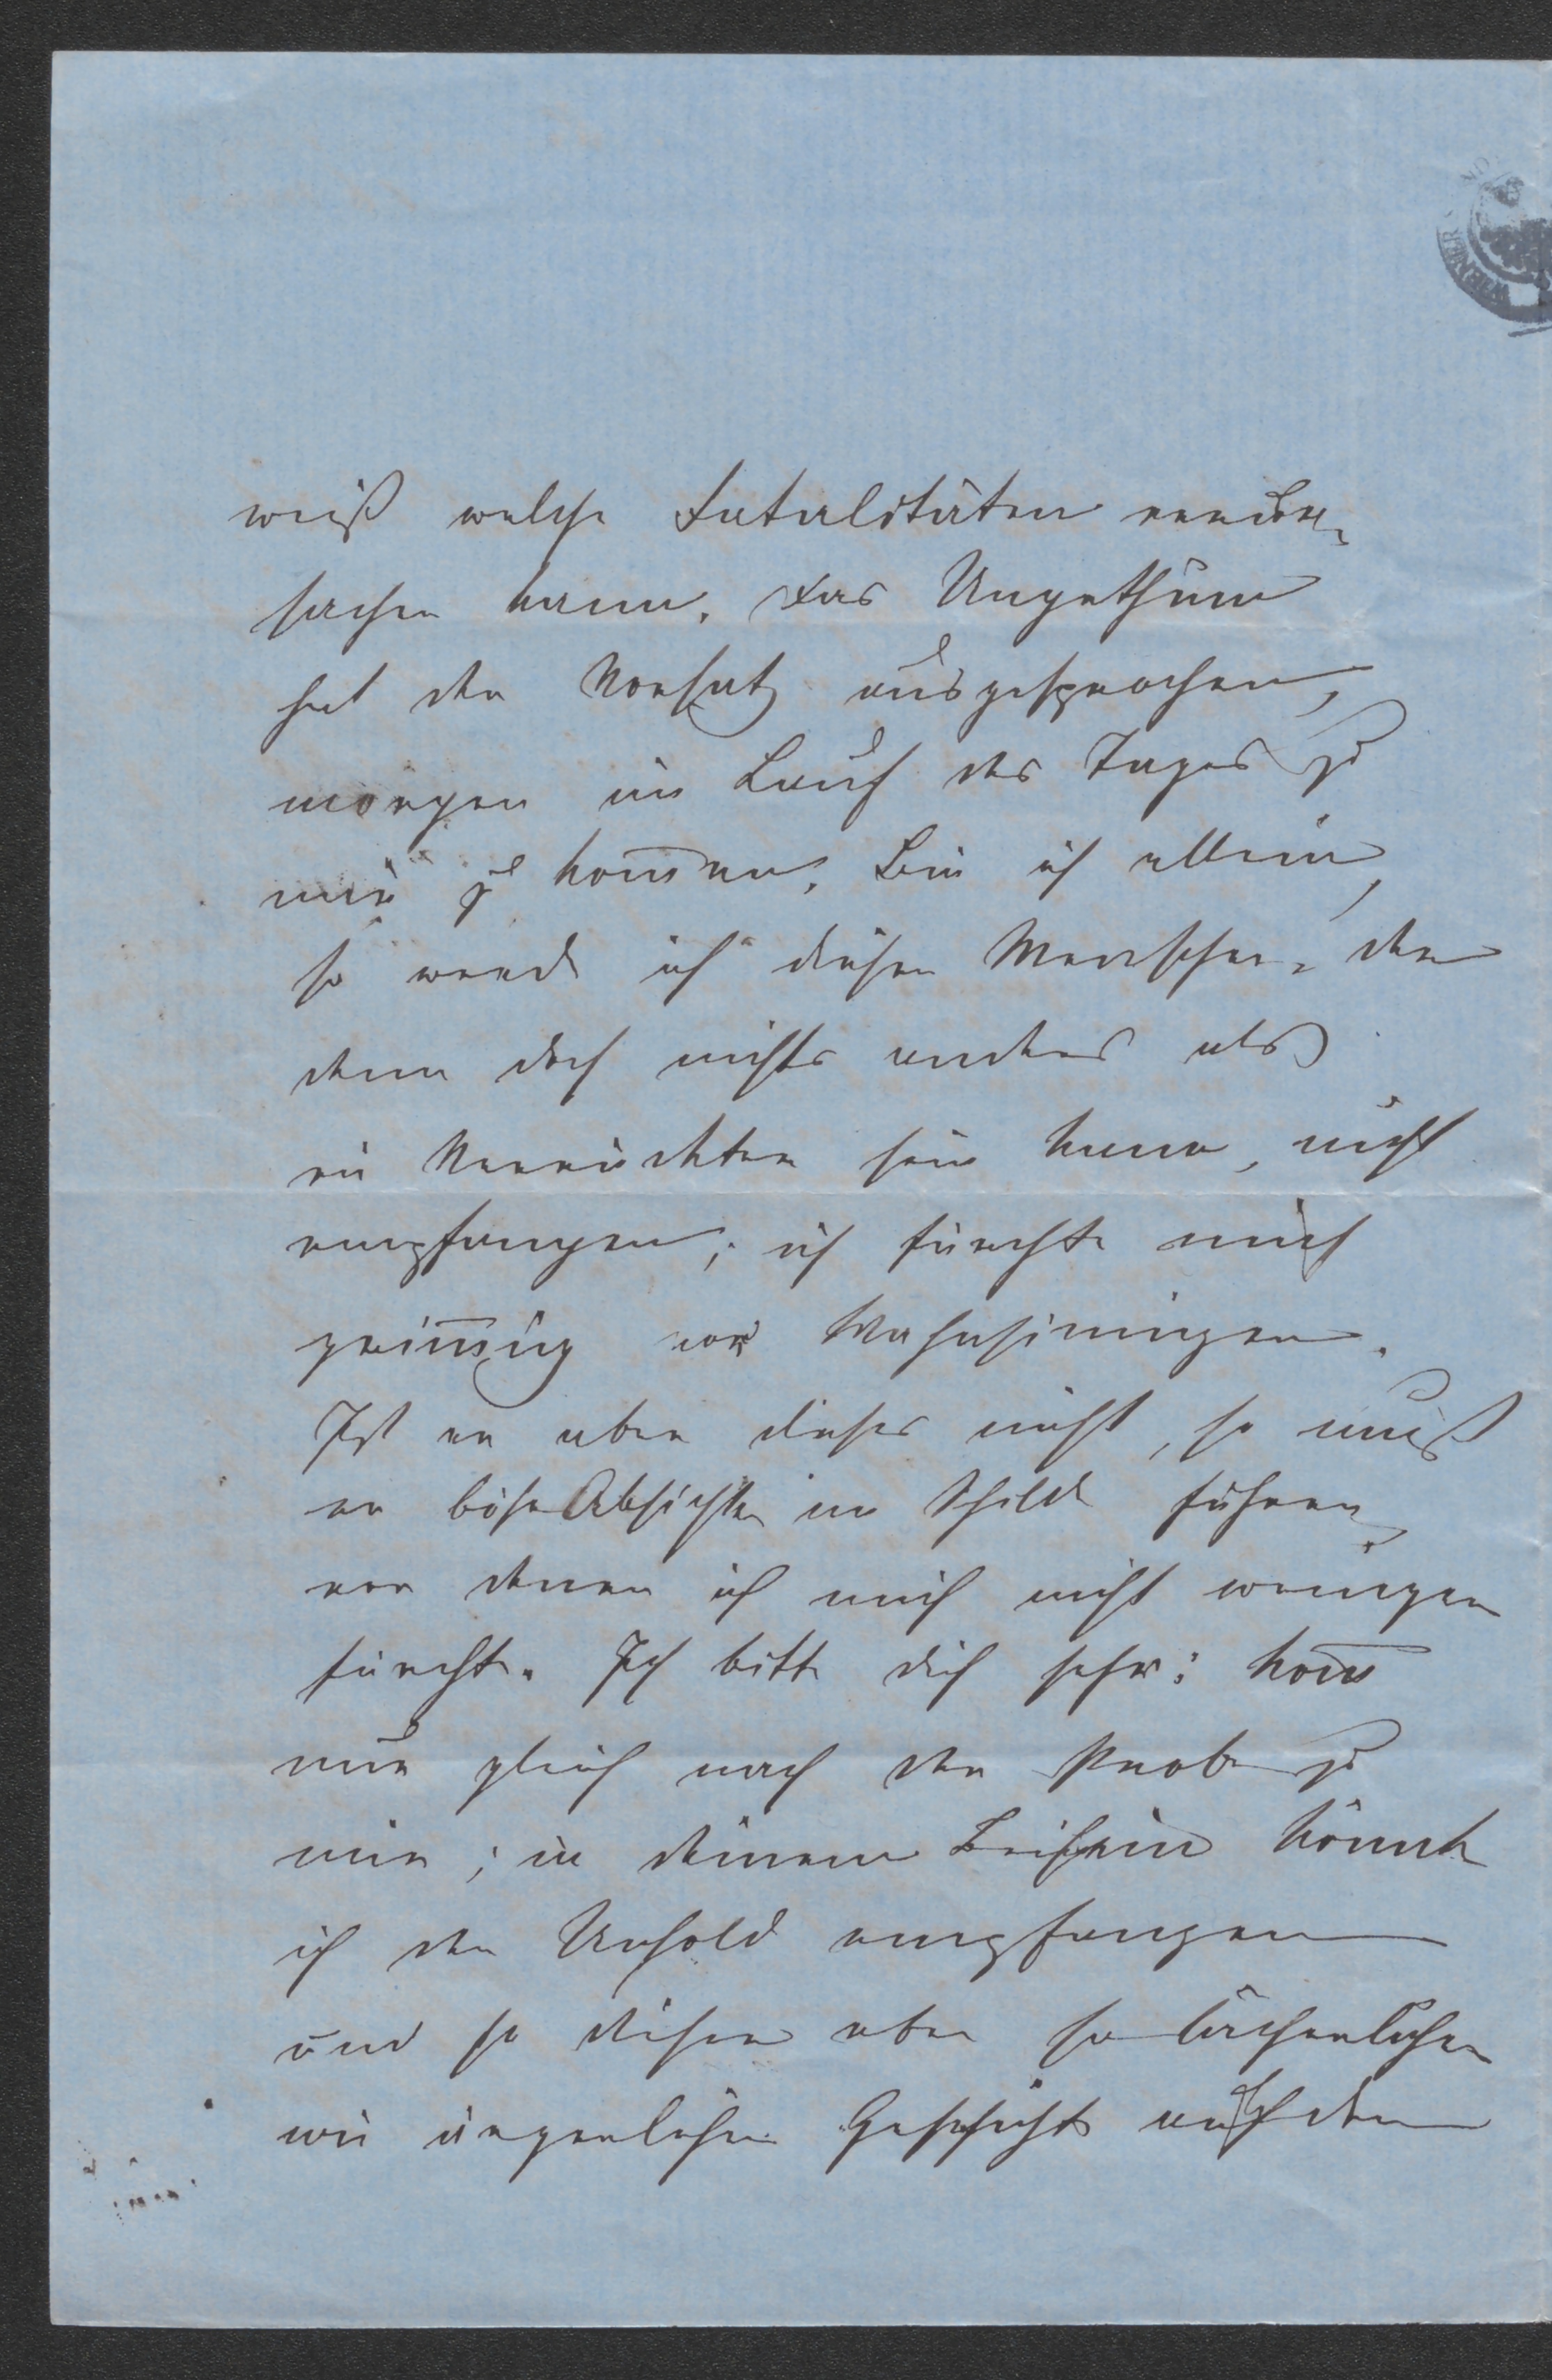 WIENER
weiß welche Fatalitäten verur-
sachen kann. Das Ungethüm
hat den Vorsatz ausgesprochen,
morgen im Lauf des Tages zu
mir zu kom̅en. Bin ich allein,
so werde ich diesen Menschen, der
denn doch nichts anders als
ein Verrückter sein kann, nicht
empfangen; ich fürchte mich
grim̅ig vor Wahnsinnigen.
Ist er aber dieses nicht, so muß
er böse Absichten im Schilde führen,
vor denen ich mich nicht weniger
fürchte. Ich bitte dich sehr: kom̅
nur gleich nach der Probe zu
mir; in deinem Beisein könnte
ich den Unhold empfangen
und so dieser eben so lächerlichen
wie ärgerlichen Geschichte auf den